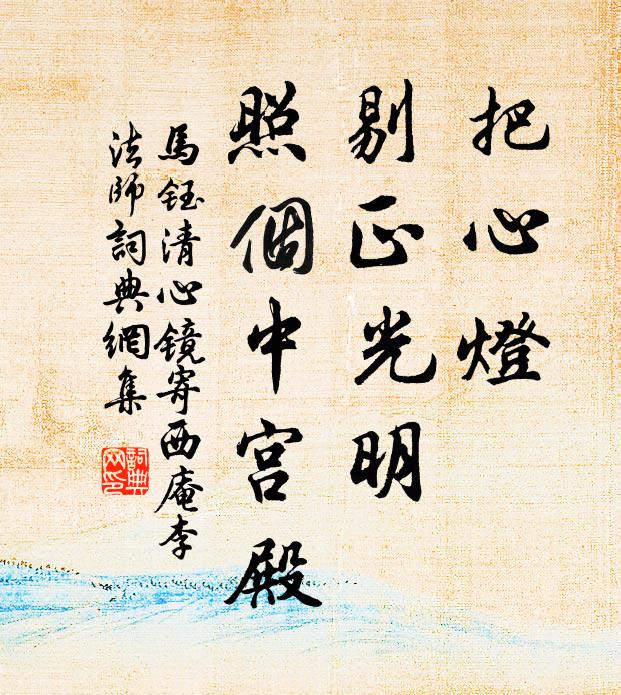 把心燈
剔正光明
照個中宮殿
馬鈺清心镜寄西庵李
法師詞典網集
詞典网印